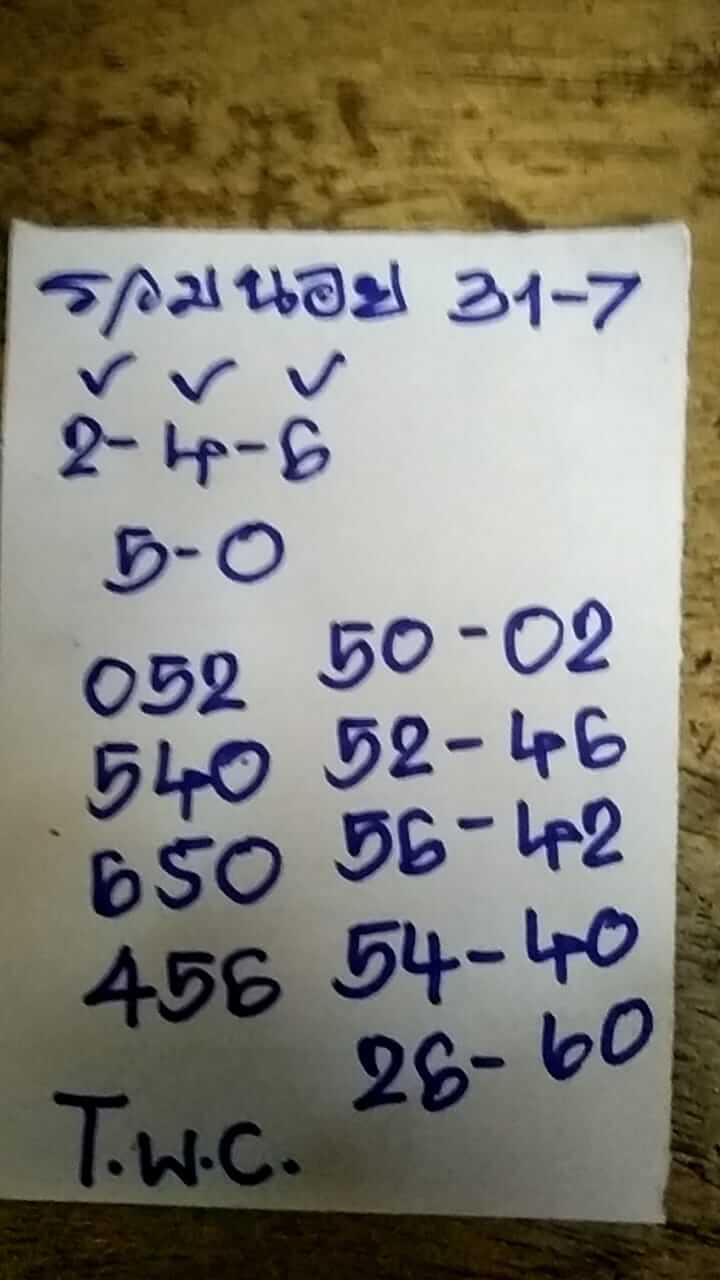 รวมหนอย 31-7
✓ ✓ ✓
2-4-6
5-0
052 50-02
540 52-46
650 56-42
456 54-40
26-60
T.W.C.